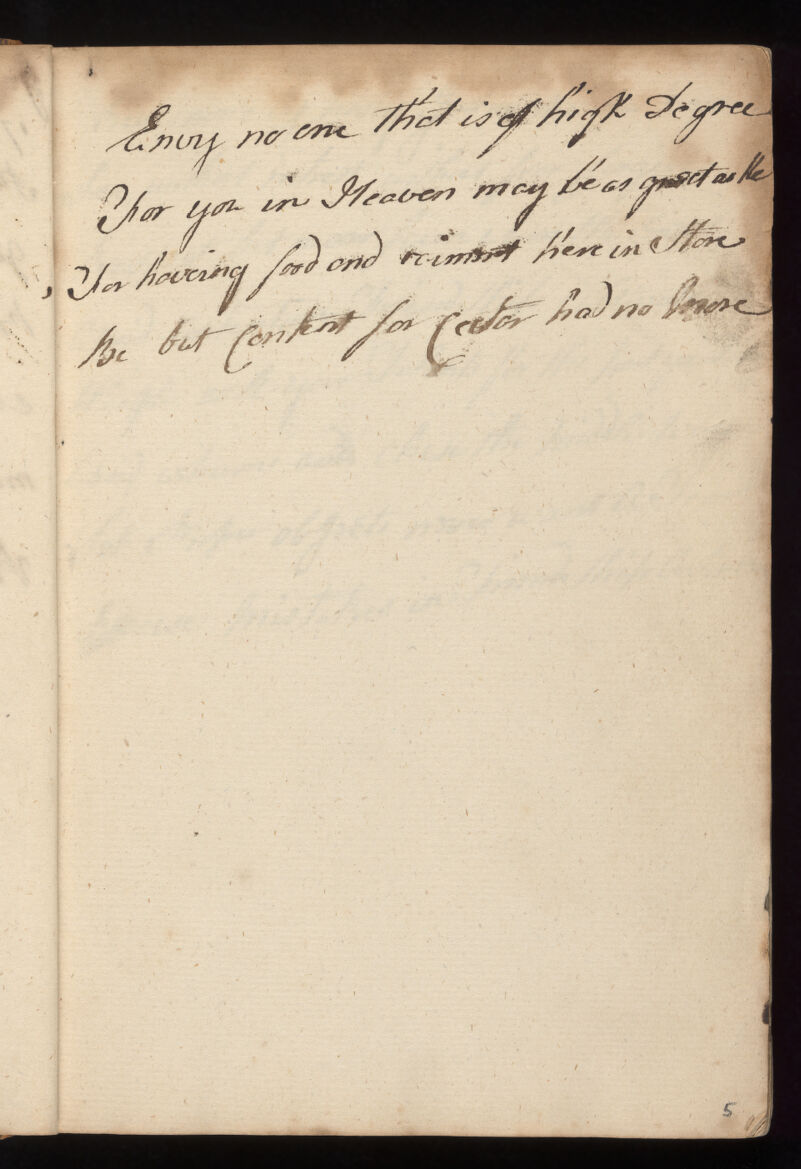 Envy no one that is of high Degree
For you in Heaven may be as great as he
For haveing food and raiment here in Store
Be but Content for had no more
5